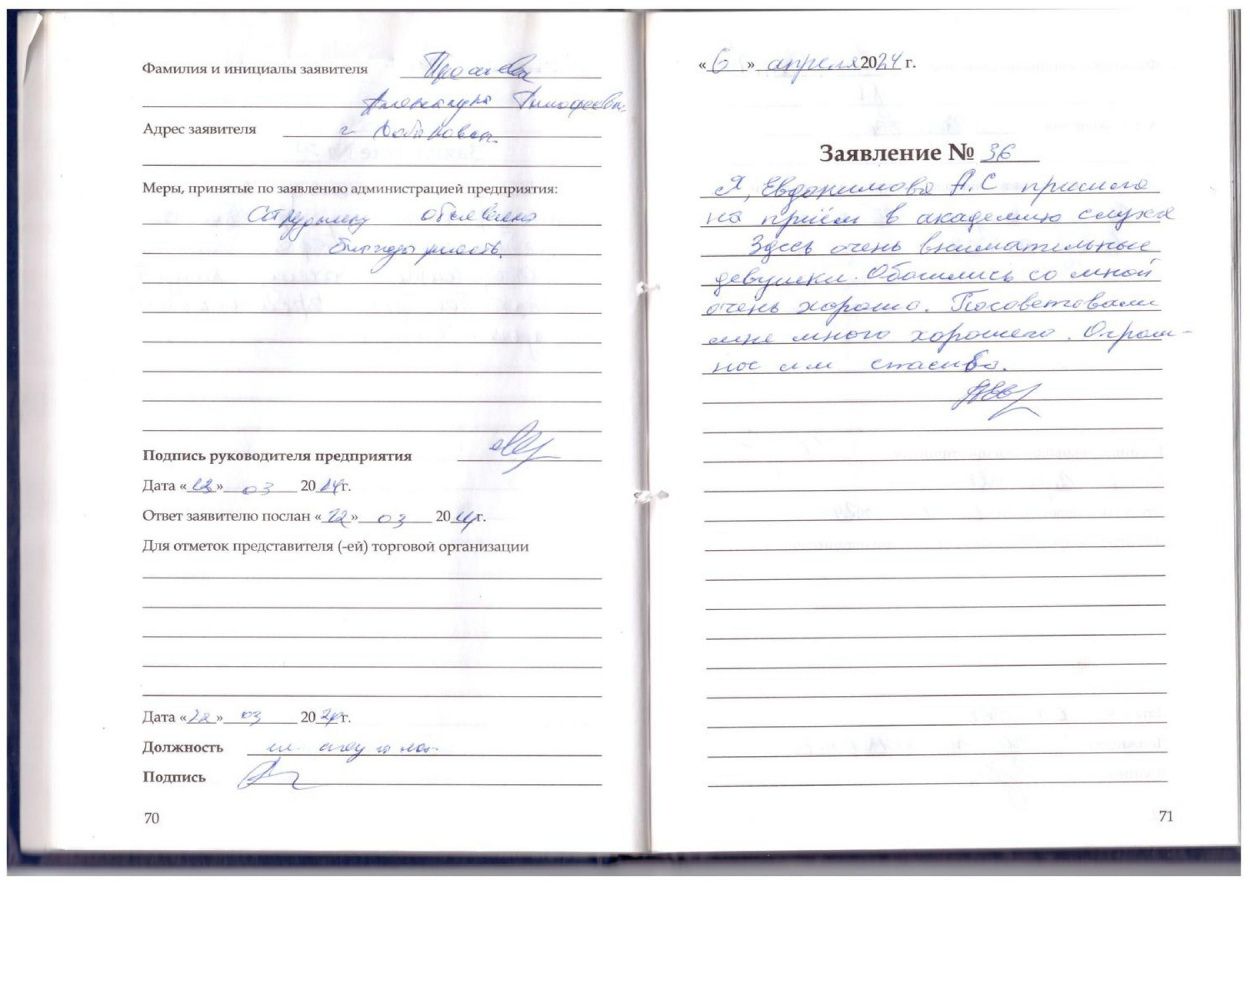 Фамилия и инициалы заявителя
Александра Тимофеевна
Адрес заявителя г.
Меры, принятые по заявлению администрацией предприятия:
Сотруднику объявлена
благодарность.
Подпись руководителя предприятия
Дата «22» 03 2024г.
Ответ заявителю послан «22» 03 2024г.
Для отметок представителя (-ей) торговой организации
Дата «22» 03 2024г.
Должность
Подпись
70
«6» апреля 2024 г.
Заявление № 36
Я, Евдокимова А.С пришла
на приём в академию слуха
Здесь очень внимательные
девушки. Обошлись со мной
очень хорошо. Посоветовали
мне много хорошего. Огром-
ное им спасибо.
71